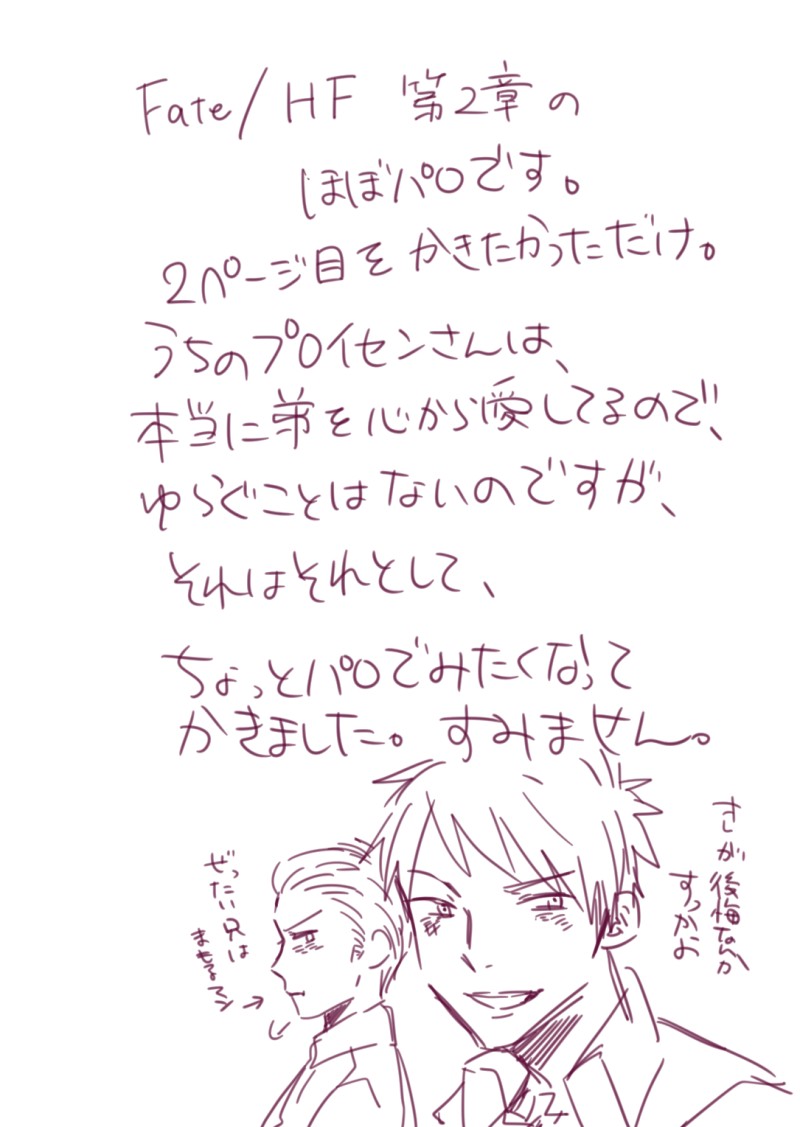 Fate/HF 第2章の
ほぼパロです。
2ページ目をかきたかっただけ。
うちのプロイセンさんは、
本当に弟を心から愛してるので、
ゆらぐことはないのですが、
それはそれとして、
ちょっとパロでみたくなって
かきました。すみません。
後悔なんか
すっかよ
ぜったい兄は
まもるマン